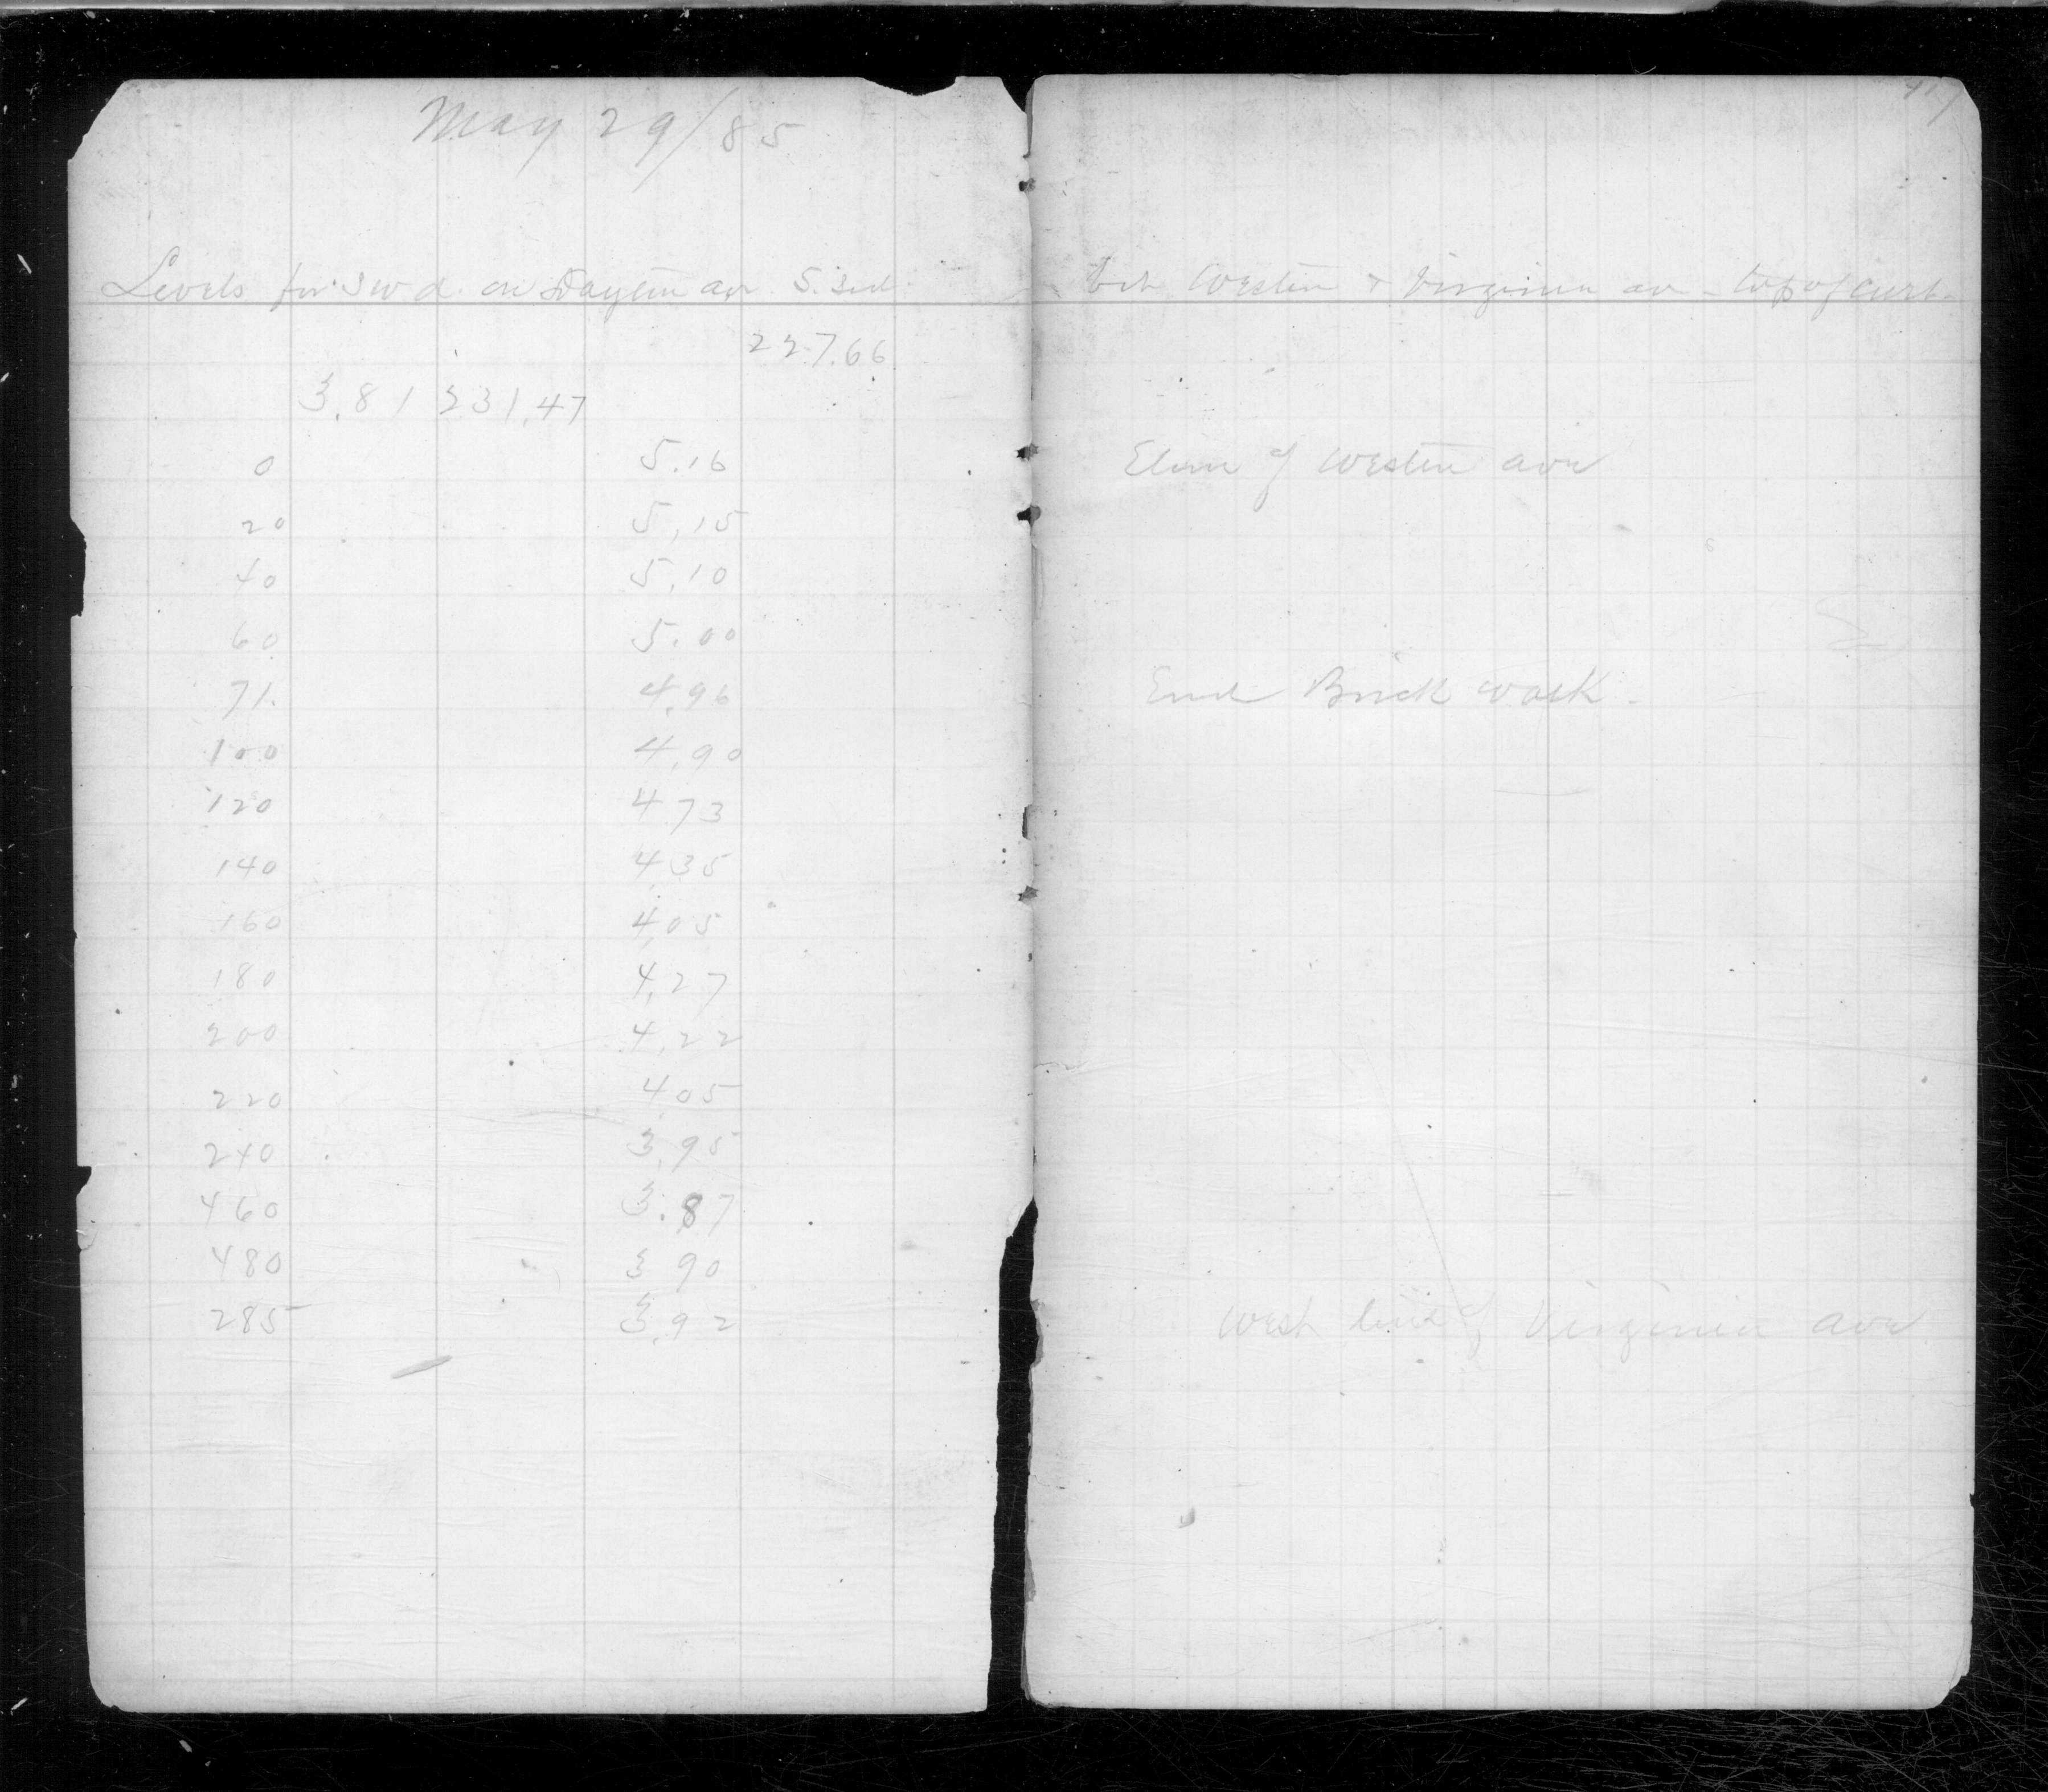 May 29/85
Levels for S w d. on Dayton av S. Sid.
227.66
3.81 231.47
0 5.16
20 5.15
40 5.10
60 5.00
71. 4.96
100 4.90
120 4.73
140 4.35
160 4.05
180 4.27
200 4.22
220 4.05
240 3.95
460 3.87
480 3.90
285 3.92
bet Western & Virginia av - top of curb.
of Western ave
End Brick walk.
West line of Virginia ave